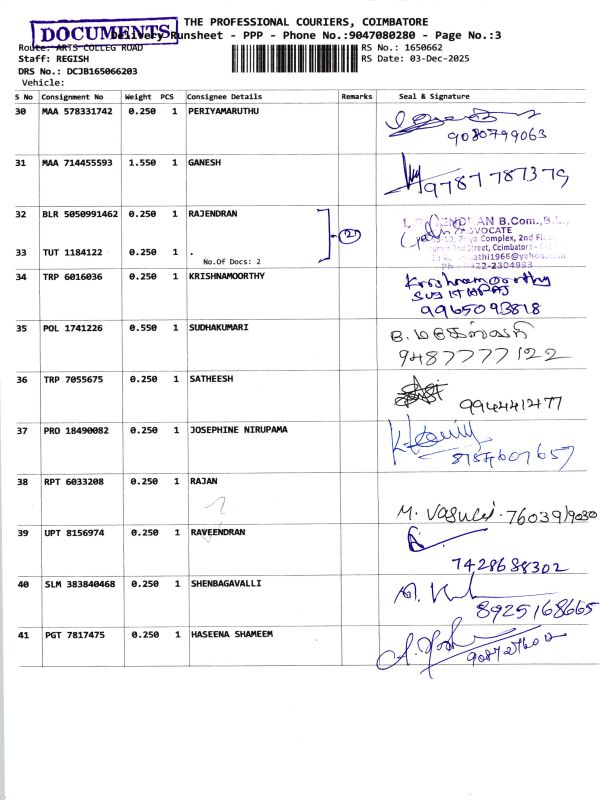 THE PROFESSIONAL COURIERS, COIMBATORE
DOCUMENTS
Delivery Runsheet - PPP - Phone No.:9047080280 - Page No.:3
Route: ARTS COLLEG ROAD
RS No.: 1650662
Staff: REGISH
RS Date: 03-Dec-2025
DRS No.: DCJB165066203
Vehicle:
S No Consignment No Weight PCS Consignee Details Remarks Seal & Signature
30 MAA 578331742 0.250 1 PERIYAMARUTHU
9080799063
31 MAA 714455593 1.550 1 GANESH
9787787379
32 BLR 5050991462 0.250 1 RAJENDRAN
B.Com.,B.L.,
ADVOCATE
Priya Complex, 2nd
Street, Coimbatore
33 TUT 1184122 0.250 1 .
No.Of Docs: 2
34 TRP 6016036 0.250 1 KRISHNAMOORTHY
Krishnamoorthy
9965093818
35 POL 1741226 0.550 1 SUDHAKUMARI
9487777122
36 TRP 7055675 0.250 1 SATHEESH
9944412477
37 PRO 18490082 0.250 1 JOSEPHINE NIRUPAMA
8754607657
38 RPT 6033208 0.250 1 RAJAN
M. Vasuki
39 UPT 8156974 0.250 1 RAVEENDRAN
7428688302
40 SLM 383840468 0.250 1 SHENBAGAVALLI
8925168665
41 PGT 7817475 0.250 1 HASEENA SHAMEEM